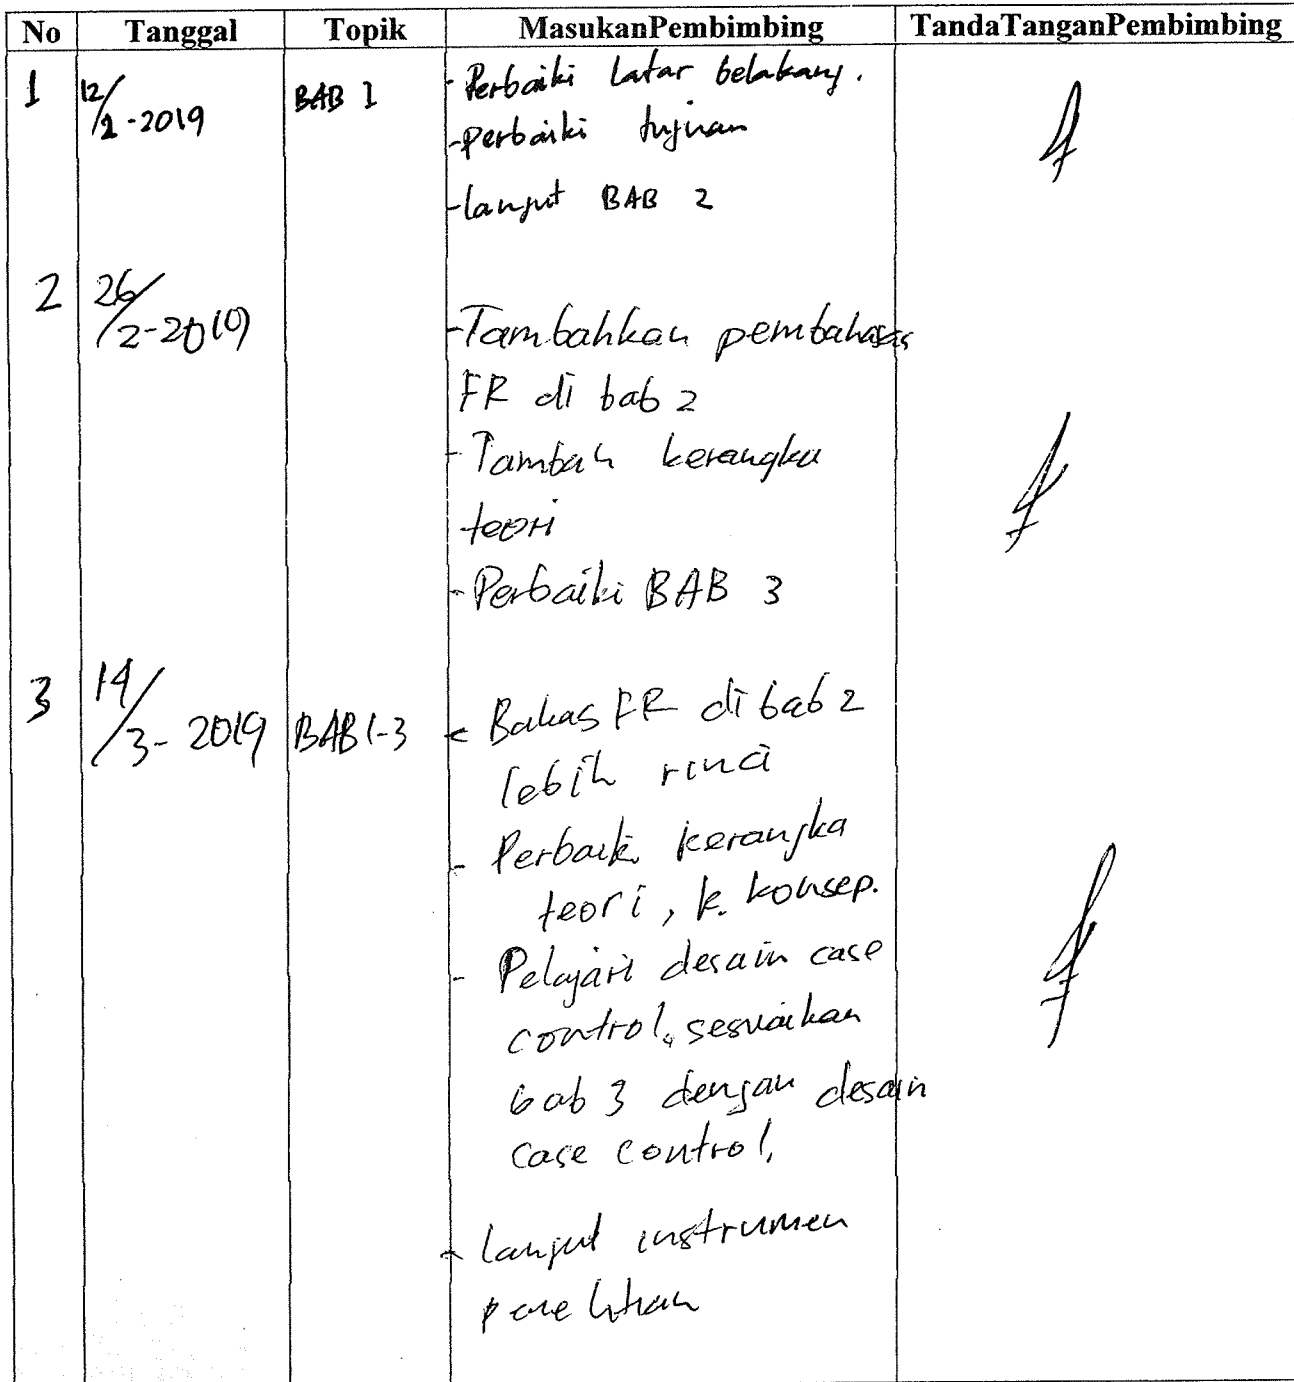 No Tanggal Topik MasukanPembimbing TandaTanganPembimbing
1 12/2-2019 BAB 1 - Perbaiki latar belakang.
- perbaiki tujuan
- lanjut BAB 2
2 26/2-2019
- Tambahkan pembahasan
FR di bab 2
- Tambah kerangka
teori
- Perbaiki BAB 3
3 14/3-2019 BAB 1-3 - Bahas FR di bab 2
lebih rinci
- Perbaiki kerangka
teori, k. konsep.
- Pelajari desain case
control, sesuaikan
bab 3 dengan desain
case control,
- lanjut instrumen
penelitian